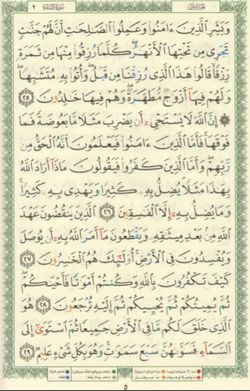 وَبَشِّرِ الَّذِينَ ءَامَنُوا وَعَمِلُوا الصَّٰلِحَٰتِ أَنَّ لَهُمْ جَنَّٰتٍ
تَجْرِى مِن تَحْتِهَا الْأَنْهَٰرُ كُلَّمَا رُزِقُوا مِنْهَا مِن ثَمَرَةٍ
رِّزْقًا قَالُوا هَٰذَا الَّذِى رُزِقْنَا مِن قَبْلُ وَأُتُوا بِهِ مُتَشَٰبِهًا
وَلَهُمْ فِيهَا أَزْوَٰجٌ مُّطَهَّرَةٌ وَهُمْ فِيهَا خَٰلِدُونَ ٢٥
إِنَّ اللَّهَ لَا يَسْتَحْىِ أَن يَضْرِبَ مَثَلًا مَّا بَعُوضَةً فَمَا
فَوْقَهَا فَأَمَّا الَّذِينَ ءَامَنُوا فَيَعْلَمُونَ أَنَّهُ الْحَقُّ مِن
رَّبِّهِمْ وَأَمَّا الَّذِينَ كَفَرُوا فَيَقُولُونَ مَاذَا أَرَادَ اللَّهُ
بِهَٰذَا مَثَلًا يُضِلُّ بِهِ كَثِيرًا وَيَهْدِى بِهِ كَثِيرًا
وَمَا يُضِلُّ بِهِ إِلَّا الْفَٰسِقِينَ ٢٦ الَّذِينَ يَنقُضُونَ عَهْدَ
اللَّهِ مِن بَعْدِ مِيثَٰقِهِ وَيَقْطَعُونَ مَا أَمَرَ اللَّهُ بِهِ أَن يُوصَلَ
وَيُفْسِدُونَ فِى الْأَرْضِ أُولَٰئِكَ هُمُ الْخَٰسِرُونَ ٢٧
كَيْفَ تَكْفُرُونَ بِاللَّهِ وَكُنتُمْ أَمْوَٰتًا فَأَحْيَٰكُمْ
ثُمَّ يُمِيتُكُمْ ثُمَّ يُحْيِيكُمْ ثُمَّ إِلَيْهِ تُرْجَعُونَ ٢٨ هُوَ
الَّذِى خَلَقَ لَكُم مَّا فِى الْأَرْضِ جَمِيعًا ثُمَّ اسْتَوَىٰ إِلَى
السَّمَاءِ فَسَوَّىٰهُنَّ سَبْعَ سَمَٰوَٰتٍ وَهُوَ بِكُلِّ شَىْءٍ عَلِيمٌ ٢٩
٥